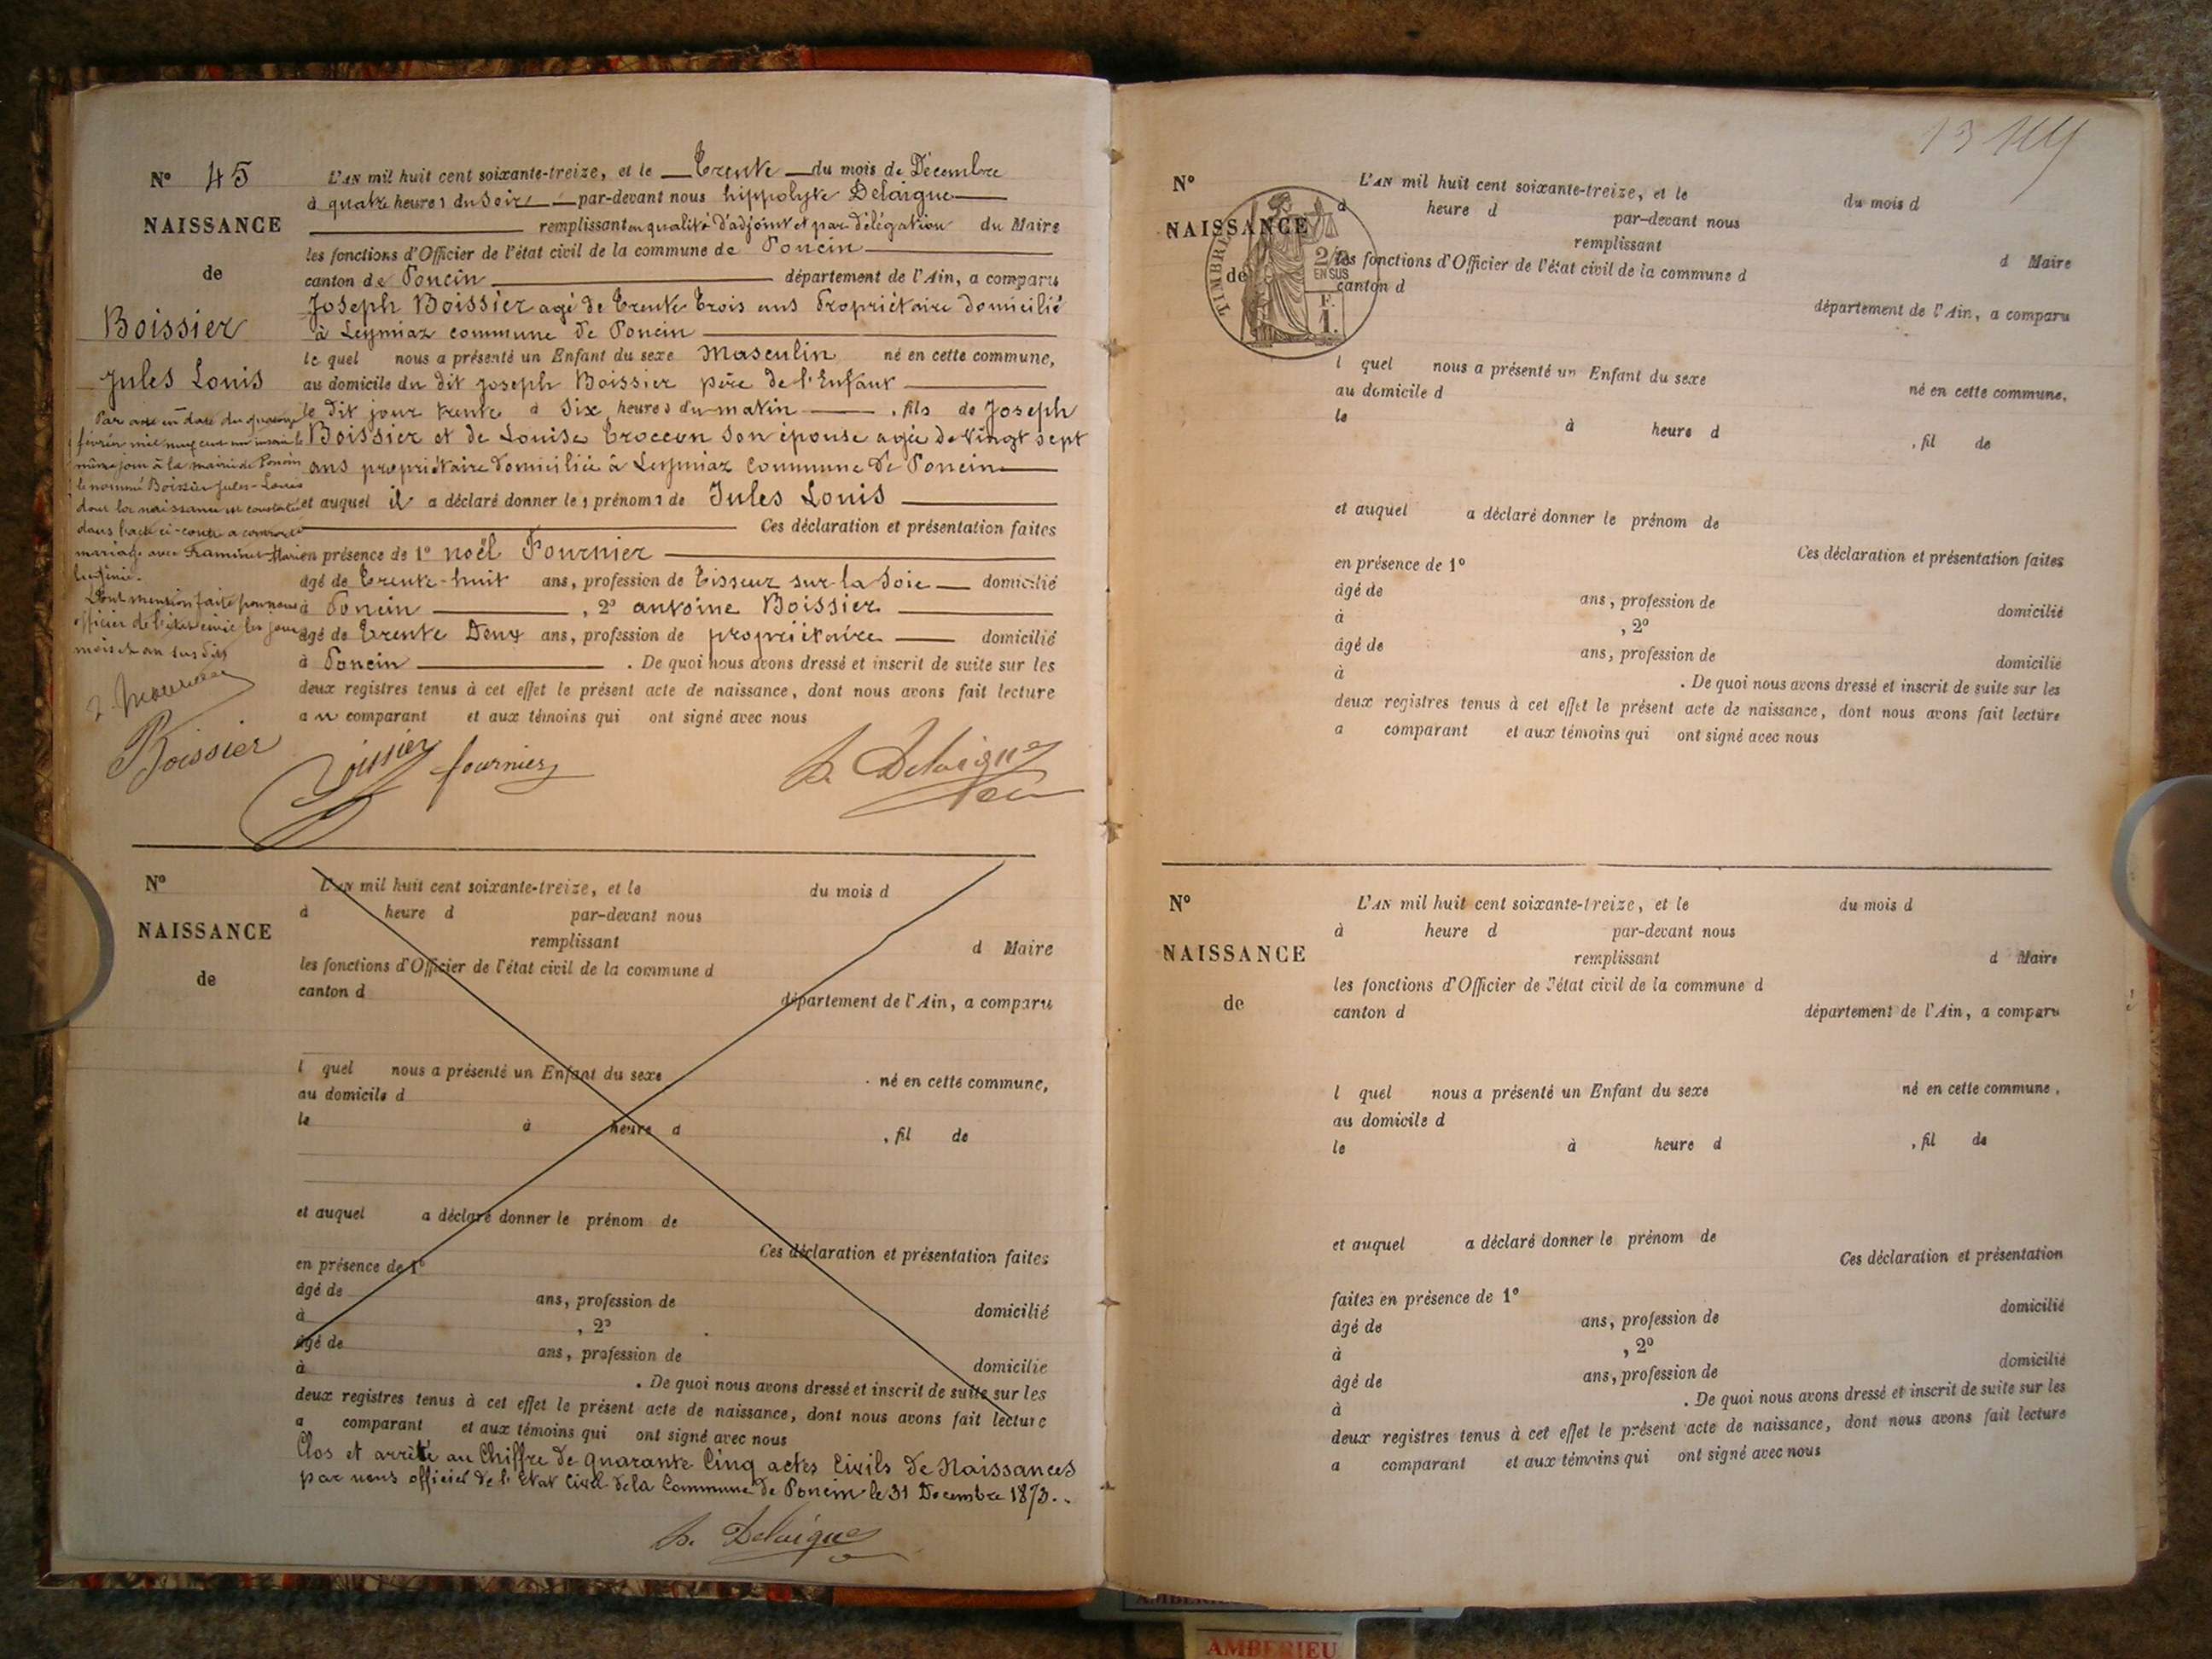 N° 45
NAISSANCE
de
Boissier
Jules Louis
Par acte en date du quatorze
février mil neuf cent un inscrit le
même jour à la mairie de Poncin
le nommé Boissier Jules-Louis
dont la naissance est constatée
dans l'acte ci-contre a contracté
mariage avec Marie
Eugénie.
Dont mention faite par nous
officier de l'état civil les jour
mois et an sus dits
L'AN mil huit cent soixante-treize, et le Trente du mois de Décembre
à quatre heures du Soir par-devant nous hippolyte Delaigue
remplissant en qualité d'adjoint et par délégation du Maire
les fonctions d'Officier de l'état civil de la commune de Poncin
canton de Poncin département de l'Ain, a comparu
Joseph Boissier agé de Trente Trois ans Propriétaire domicilié
à Leymiaz commune de Poncin
le quel nous a présenté un Enfant du sexe Masculin né en cette commune,
au domicile du dit joseph Boissier père de l'Enfant
le dit jour trente à Six heures du matin , fils de Joseph
Boissier et de Louise Troccon Son épouse agée de Vingt sept
ans propriétaire domiciliée à Leymiaz Commune de Poncin
et auquel il a déclaré donner les prénoms de Jules Louis
Ces déclaration et présentation faites
en présence de 1° noël Fournier
âgé de Trente-huit ans, profession de Tisseur sur la Soie domicilié
à Poncin , 2° antoine Boissier
âgé de Trente Deux ans, profession de propriétaire domicilié
à Poncin . De quoi nous avons dressé et inscrit de suite sur les
deux registres tenus à cet effet le présent acte de naissance, dont nous avons fait lecture
au comparant et aux témoins qui ont signé avec nous
Boissier Boissier fournier h. Delaigue
N°
NAISSANCE
de
L'AN mil huit cent soixante-treize, et le du mois d
à heure d par-devant nous
remplissant d Maire
les fonctions d'Officier de l'état civil de la commune d
canton d département de l'Ain, a comparu
l quel nous a présenté un Enfant du sexe né en cette commune,
au domicile d
le à heure d , fil de
et auquel a déclaré donner le prénom de
Ces déclaration et présentation faites
en présence de 1°
âgé de ans, profession de domicilié
à , 2°
âgé de ans, profession de domicilié
à . De quoi nous avons dressé et inscrit de suite sur les
deux registres tenus à cet effet le présent acte de naissance, dont nous avons fait lecture
a comparant et aux témoins qui ont signé avec nous
Clos et arrêté au Chiffre de quarante Cinq actes Civils de Naissances
par nous officier de l'Etat Civil de la Commune de Poncin le 31 Decembre 1873.
h. Delaigue
N°
NAISSANCE
de
TIMBRE
2/10
EN SUS
F.
1.
L'AN mil huit cent soixante-treize, et le du mois d
à heure d par-devant nous
remplissant d Maire
les fonctions d'Officier de l'état civil de la commune d
canton d département de l'Ain, a comparu
l quel nous a présenté un Enfant du sexe né en cette commune,
au domicile d
le à heure d , fil de
et auquel a déclaré donner le prénom de
Ces déclaration et présentation faites
en présence de 1°
âgé de ans, profession de domicilié
à , 2°
âgé de ans, profession de domicilié
à . De quoi nous avons dressé et inscrit de suite sur les
deux registres tenus à cet effet le présent acte de naissance, dont nous avons fait lecture
a comparant et aux témoins qui ont signé avec nous
N°
NAISSANCE
de
L'AN mil huit cent soixante-treize, et le du mois d
à heure d par-devant nous
remplissant d Maire
les fonctions d'Officier de l'état civil de la commune d
canton d département de l'Ain, a comparu
l quel nous a présenté un Enfant du sexe né en cette commune,
au domicile d
le à heure d , fil de
et auquel a déclaré donner le prénom de
Ces déclaration et présentation
faites en présence de 1°
âgé de ans, profession de domicilié
à , 2°
âgé de ans, profession de domicilié
à . De quoi nous avons dressé et inscrit de suite sur les
deux registres tenus à cet effet le présent acte de naissance, dont nous avons fait lecture
a comparant et aux témoins qui ont signé avec nous
AMBERIEU